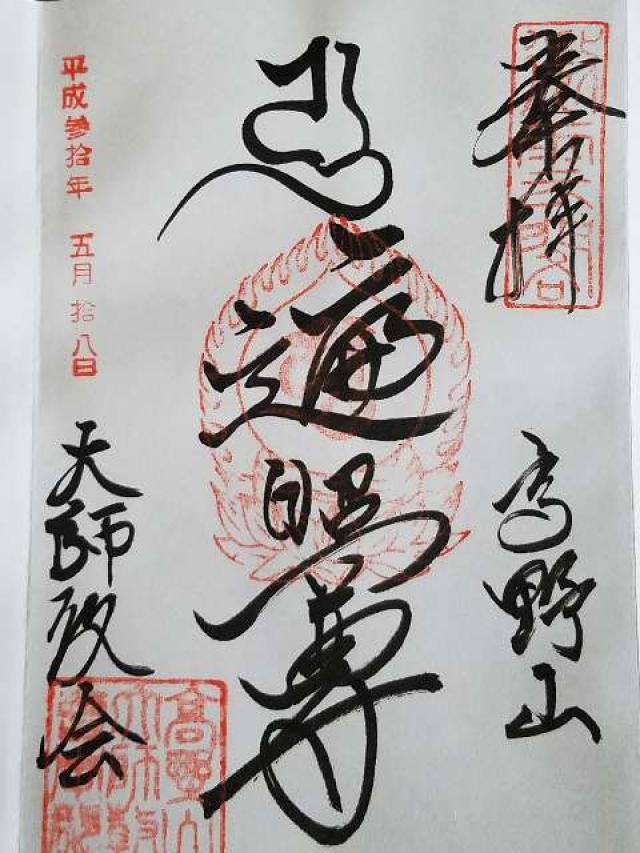 奉拝
高野山
遍照尊
平成参拾年 五月拾八日
大師教会